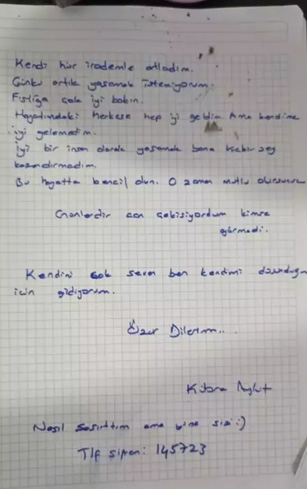 Kendi hür irademle atladım.
Çünkü artık yaşamak istemiyorum.
Fıstığa çok iyi bakın.
Hayatımdaki herkese hep iyi geldim Ama kendime
iyi gelemedim.
iyi bir insan olarak yaşamak bana hiçbir şey
kazandırmadım.
Bu hayatta bencil olun. O zaman mutlu olursunuz
can çekişiyordum kimse
görmedi.
Kendini çok seven ben kendimi
için gidiyorum.
Özür Dilerim...
Kübra Aykut
Nasıl şaşırttım ama yine sizi :)
Tlf şifrem: 145723